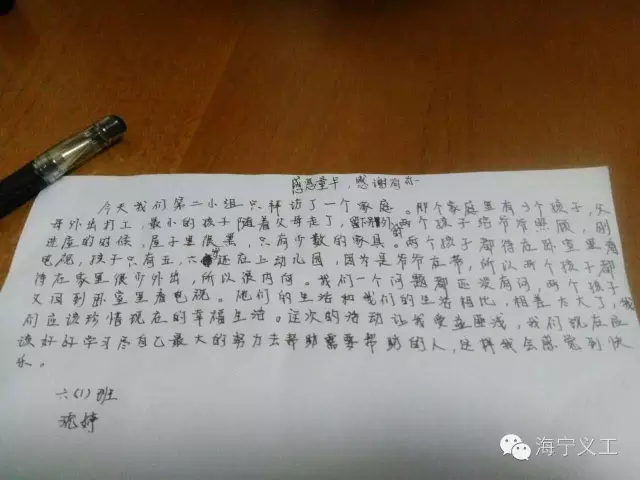 感恩童年,感谢有你
今天我们第二小组只拜访了一个家庭。那个家庭里有3个孩子,父
母外出打工,最小的孩子随着父母走了,留下另外两个孩子给爷爷照顾,刚
进屋的时候,屋子里很黑,只有少数的家具。两个孩子都待在卧室里看
电视,孩子只有五、六岁还在上幼儿园,因为是爷爷在带,所以两个孩子都
待在家里很少外出,所以很内向。我们一个问题都还没有问,两个孩子
又回到卧室里看电视。他们的生活和我们的生活相比,相差太大了,我
们应该珍惜现在的幸福生活。这次的活动让我受益匪浅,我们现在应
该好好学习尽自己最大的努力去帮助需要帮助的人,这样我会感觉到快
乐。
六(1)班
婷
海宁义工